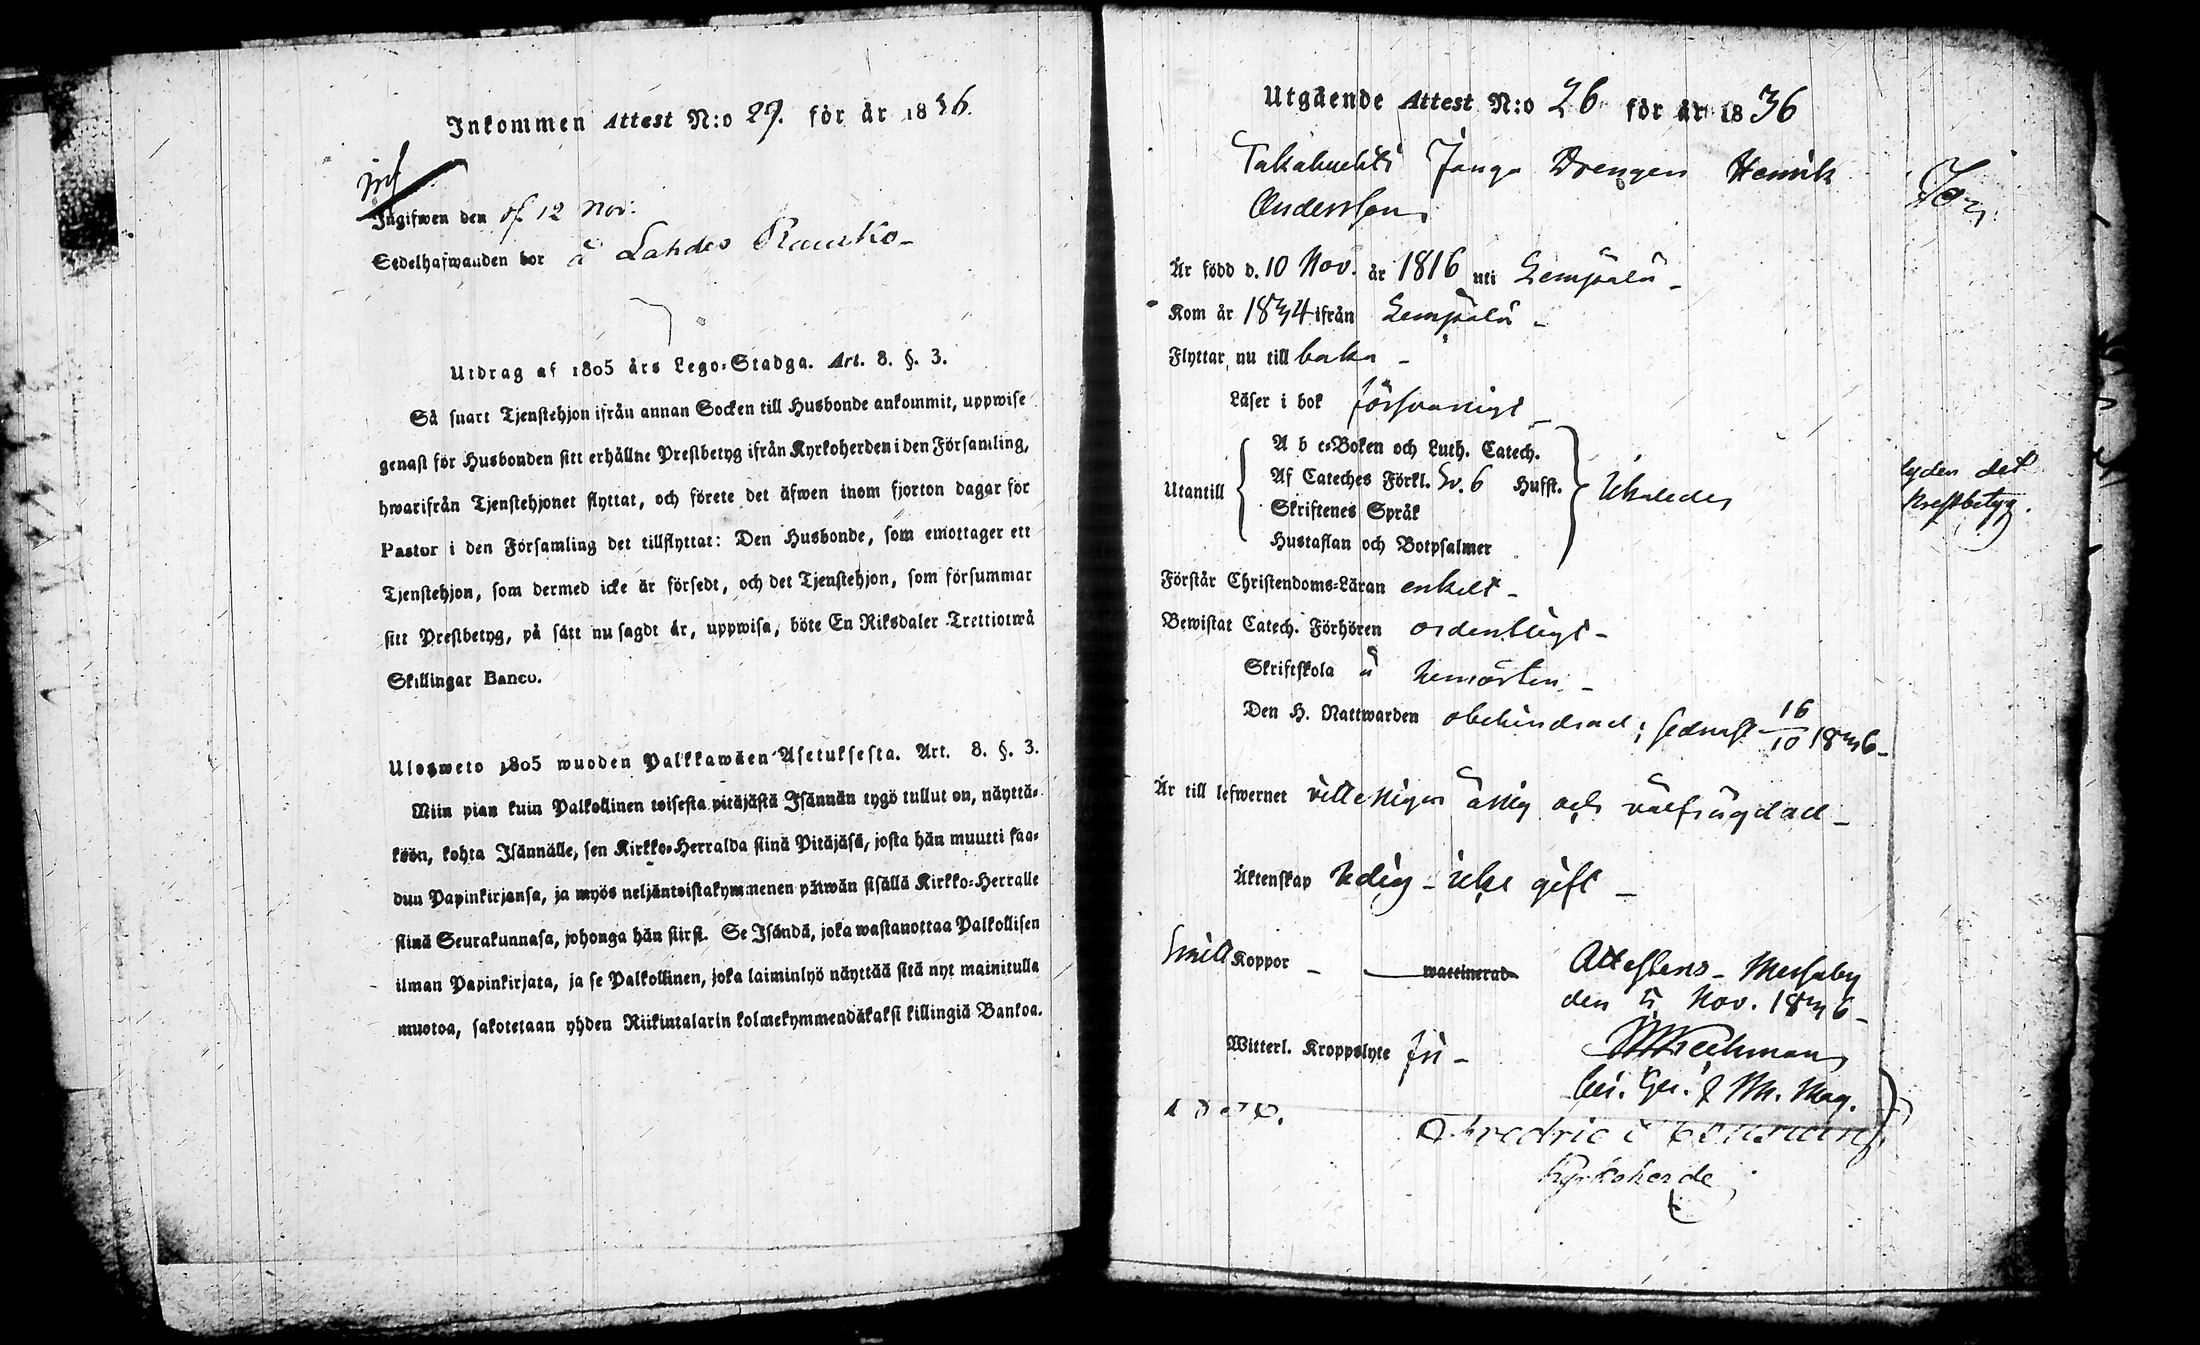 Inkommen Attest N:o 29. för år 1836.
Ingifwen den 12 Nov:
Sedelhafwanden bor å Lahdes Rausko
Utdrag af 1805 års Lego-Stadga. Art. 8. §. 3.
Så snart Tjenstehjon ifrån annan Socken till Husbonde ankommit, uppwise
genast för Husbonden sitt erhållne Prestbetyg ifrån Kyrkoherden i den Församling,
hwarifrån Tjenstehjonet flyttat, och förete det äfwen inom fjorton dagar för
Pastor i den Församling det tillflyttat: Den Husbonde, som emottager ett
Tjenstehjon, som dermed icke är försedt, och det Tjenstehjon, som försummar
sitt Prestbetyg, på sätt nu sagdt är, uppwisa, böte En Riksdaler Trettiotwå
Skillingar Banco.
Ulosweto 1805 wuoden Palkkawäen Asetuksesta. Art. 8. §. 3.
Niin pian kuin Palkollinen toisesta pitäjästä Isännän tygö tullut on, näyttä-
köön, kohta Isännälle, sen Kirkko-Herralda siinä Pitäjäsä, josta hän muutti saa-
dun Papinkirjansa, ja myös neljäntoistakymmenen päiwän sisällä Kirkko-Herralle
siinä Seurakunnasa, johonga hän siirsi. Se Isändä, joka wastanottaa Palkollisen
ilman Papinkirjata, ja se Palkollinen, joka laiminlyö näyttää sitä nyt mainitulla
muotoa, sakotetaan yhden Riikintalarin kolmekymmendäkaksi killingiä Bankoa.
Utgående Attest N:o 26 för år 1836
Takahuhti Drengen Henrik
Andersson
Är född d. 10 Nov. år 1816 uti Lempälä
Kom år 1834 ifrån Lempälä
Flyttar nu till baka
Läser i bok försvarligt
A b c-Boken och Luth. Catech.
Utantill Af Cateches Förkl. Sv. 6 Husst. likaledes
Skriftenes Språk
Hustaflan och Botpsalmer
lyder det
Prestbetyg.
Förstår Christendoms-Läran enkelt
Bewistat Catech. Förhören ordentligt
Skriftskola å hemorten
Den H. Nattwarden obehindrad; sednast 16/10 1836
Är till lefwernet ärlig och välfrägdad
Äktenskap ledig - icke gift
Koppor wattinerad
Attesteras - Messuby
den 5 Nov. 1836
Witterl. Kroppslyte fri
Mag.
Fredric
Kyrkoherde